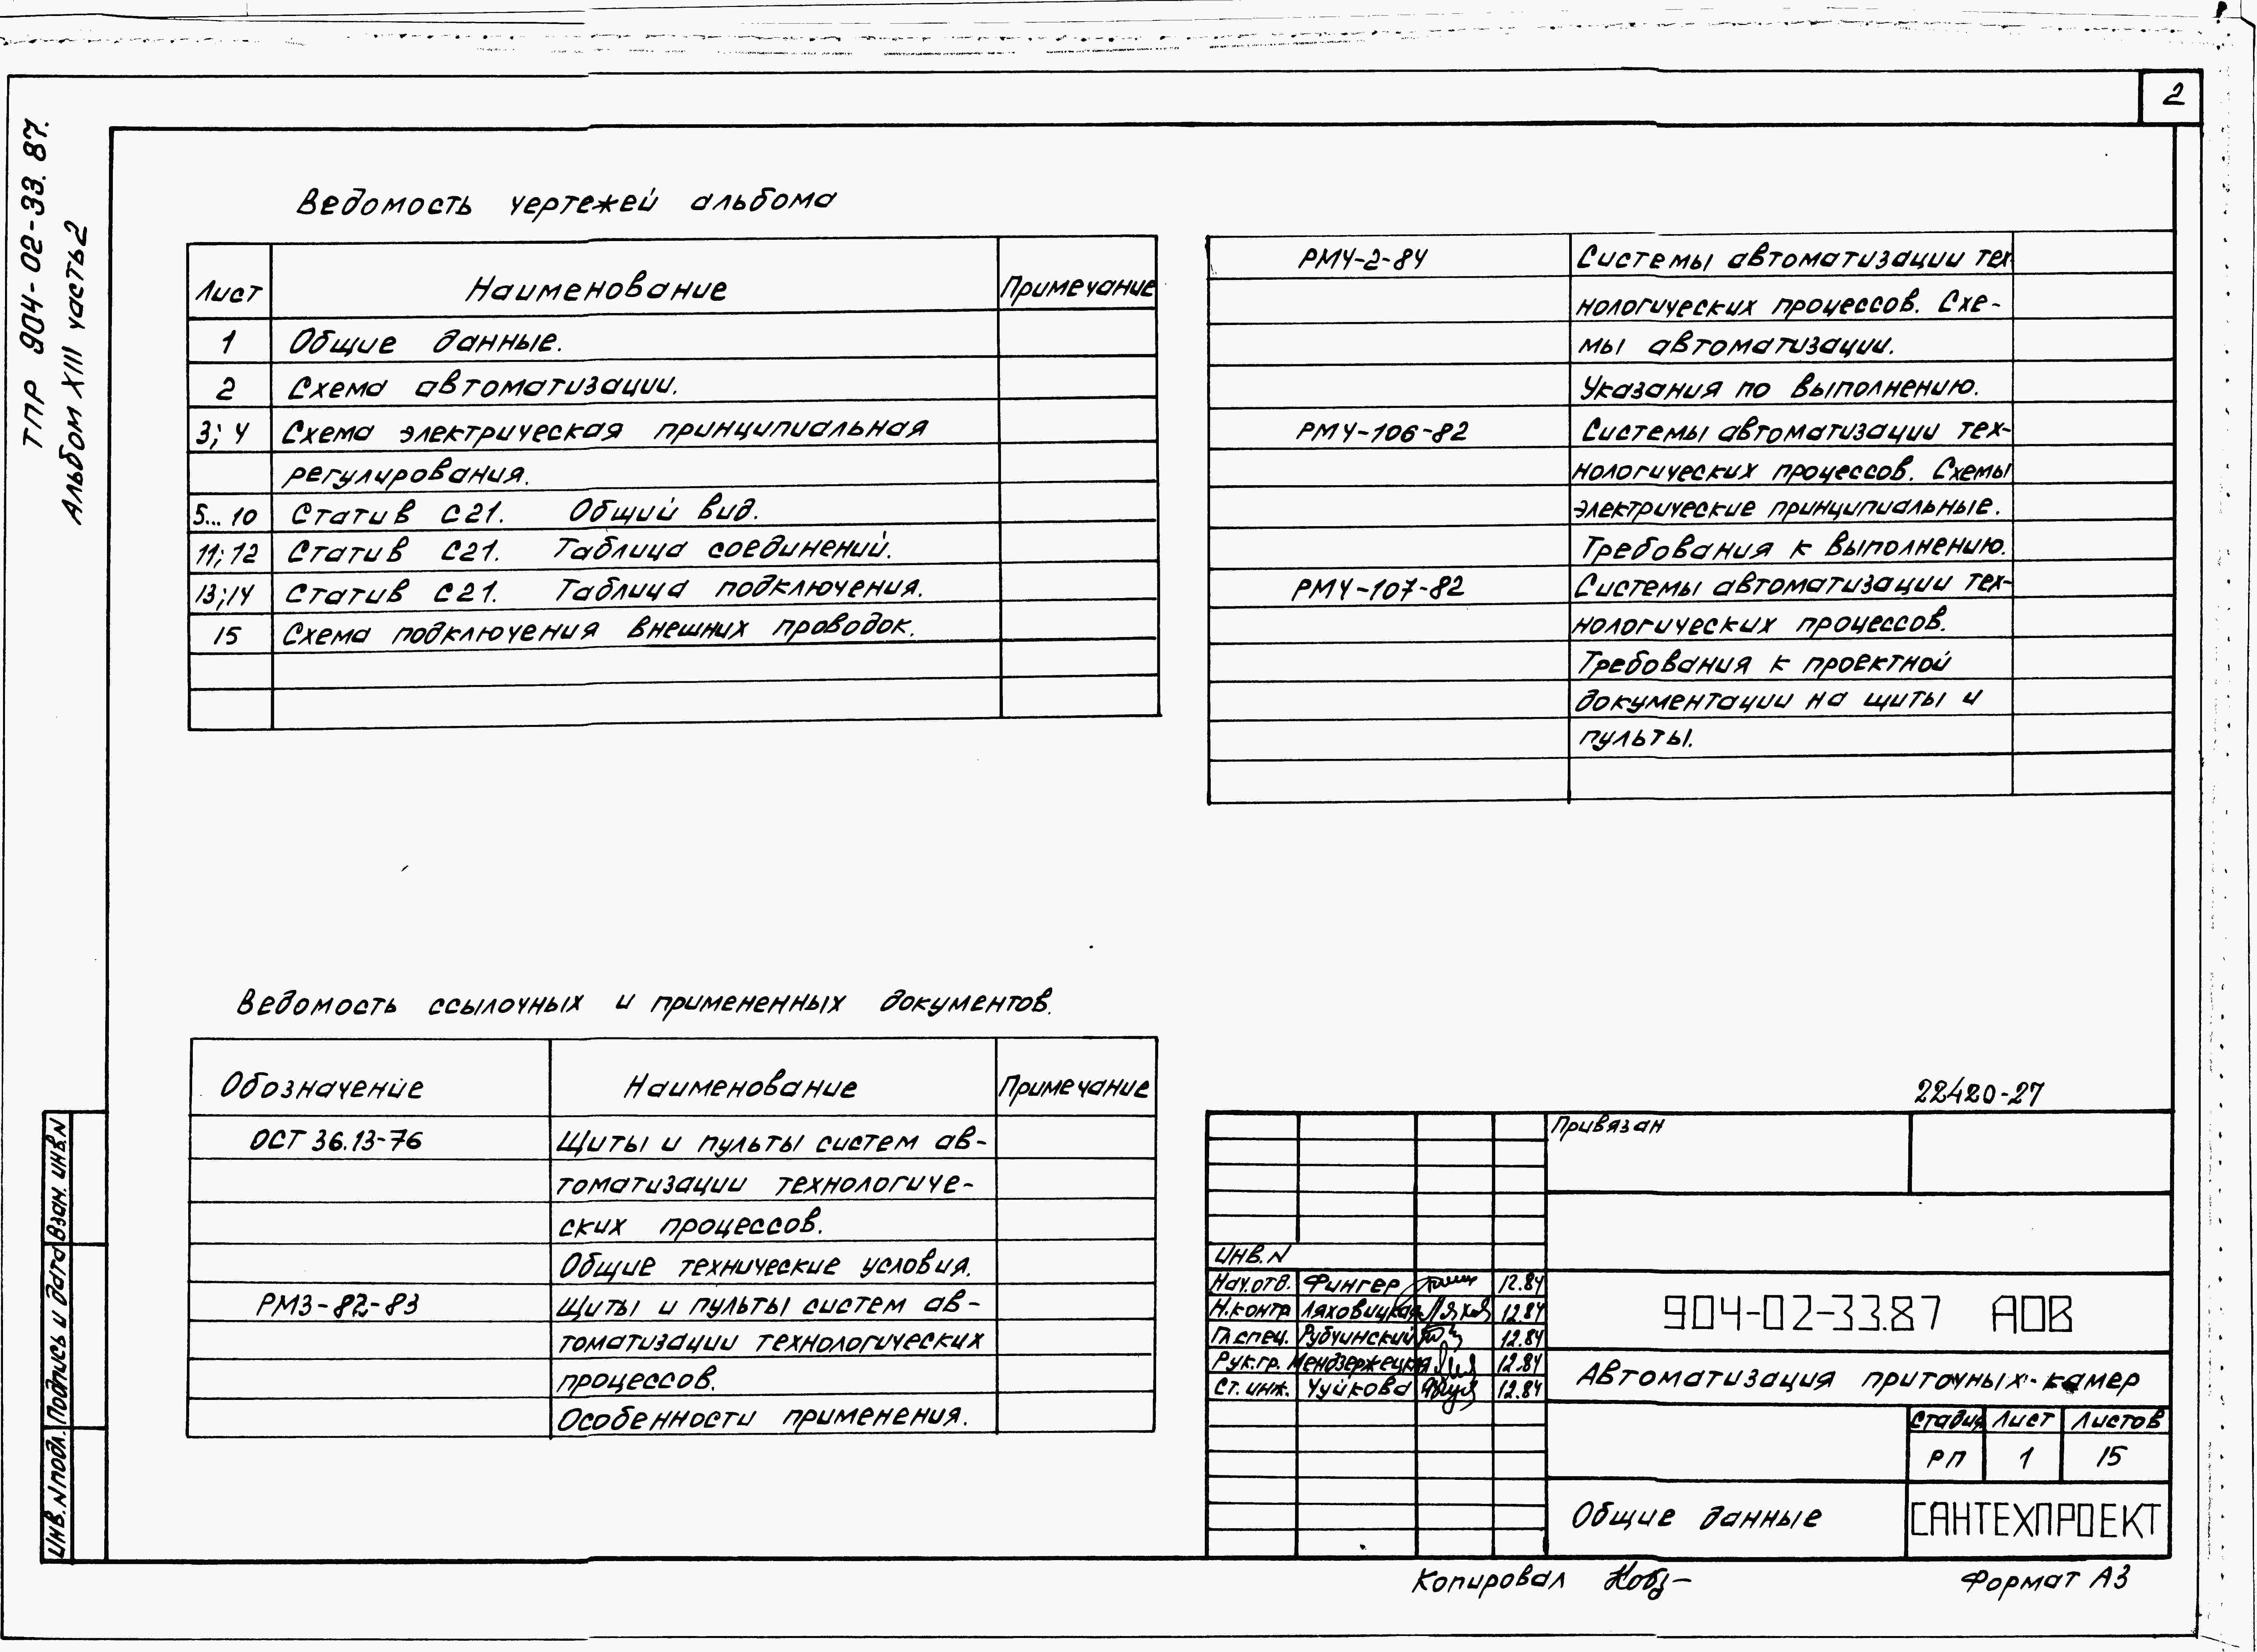 2
ТПР 904-02-33.87.
Альбом XIII часть 2
Ведомость чертежей альбома
Лист Наименование Примечание
1 Общие данные.
2 Схема автоматизации.
3; 4 Схема электрическая принципиальная
регулирования.
5...10 Статив С21. Общий вид.
11; 12 Статив С21. Таблица соединений.
13; 14 Статив С21. Таблица подключения.
15 Схема подключения внешних проводок.
РМ4-2-84 Системы автоматизации тех
нологических процессов. Схе-
мы автоматизации.
Указания по выполнению.
РМ4-106-82 Системы автоматизации тех-
нологических процессов. Схемы
электрические принципиальные.
Требования к выполнению.
РМ4-107-82 Системы автоматизации тех-
нологических процессов.
Требования к проектной
документации на щиты и
пульты.
Ведомость ссылочных и примененных документов.
Обозначение Наименование Примечание
ОСТ 36.13-76 Щиты и пульты систем ав-
томатизации технологиче-
ских процессов.
Общие технические условия.
РМ3-82-83 Щиты и пульты систем ав-
томатизации технологических
процессов.
Особенности применения.
22420-27
Привязан
Инв. N
Нач. отд. Фингер 12.84
Н. контр Ляховицкая 12.84
Гл. спец. Рубчинский 12.84
Рук. гр. Мендзержецкая 12.84
Ст. инж. Чуйкова 12.84
904-02-33.87 АОВ
Автоматизация приточных камер
Стадия Лист Листов
РП 1 15
Общие данные
САНТЕХПРОЕКТ
Инв. N подл. Подпись и дата Взам. инв. N
Копировал
Формат А3